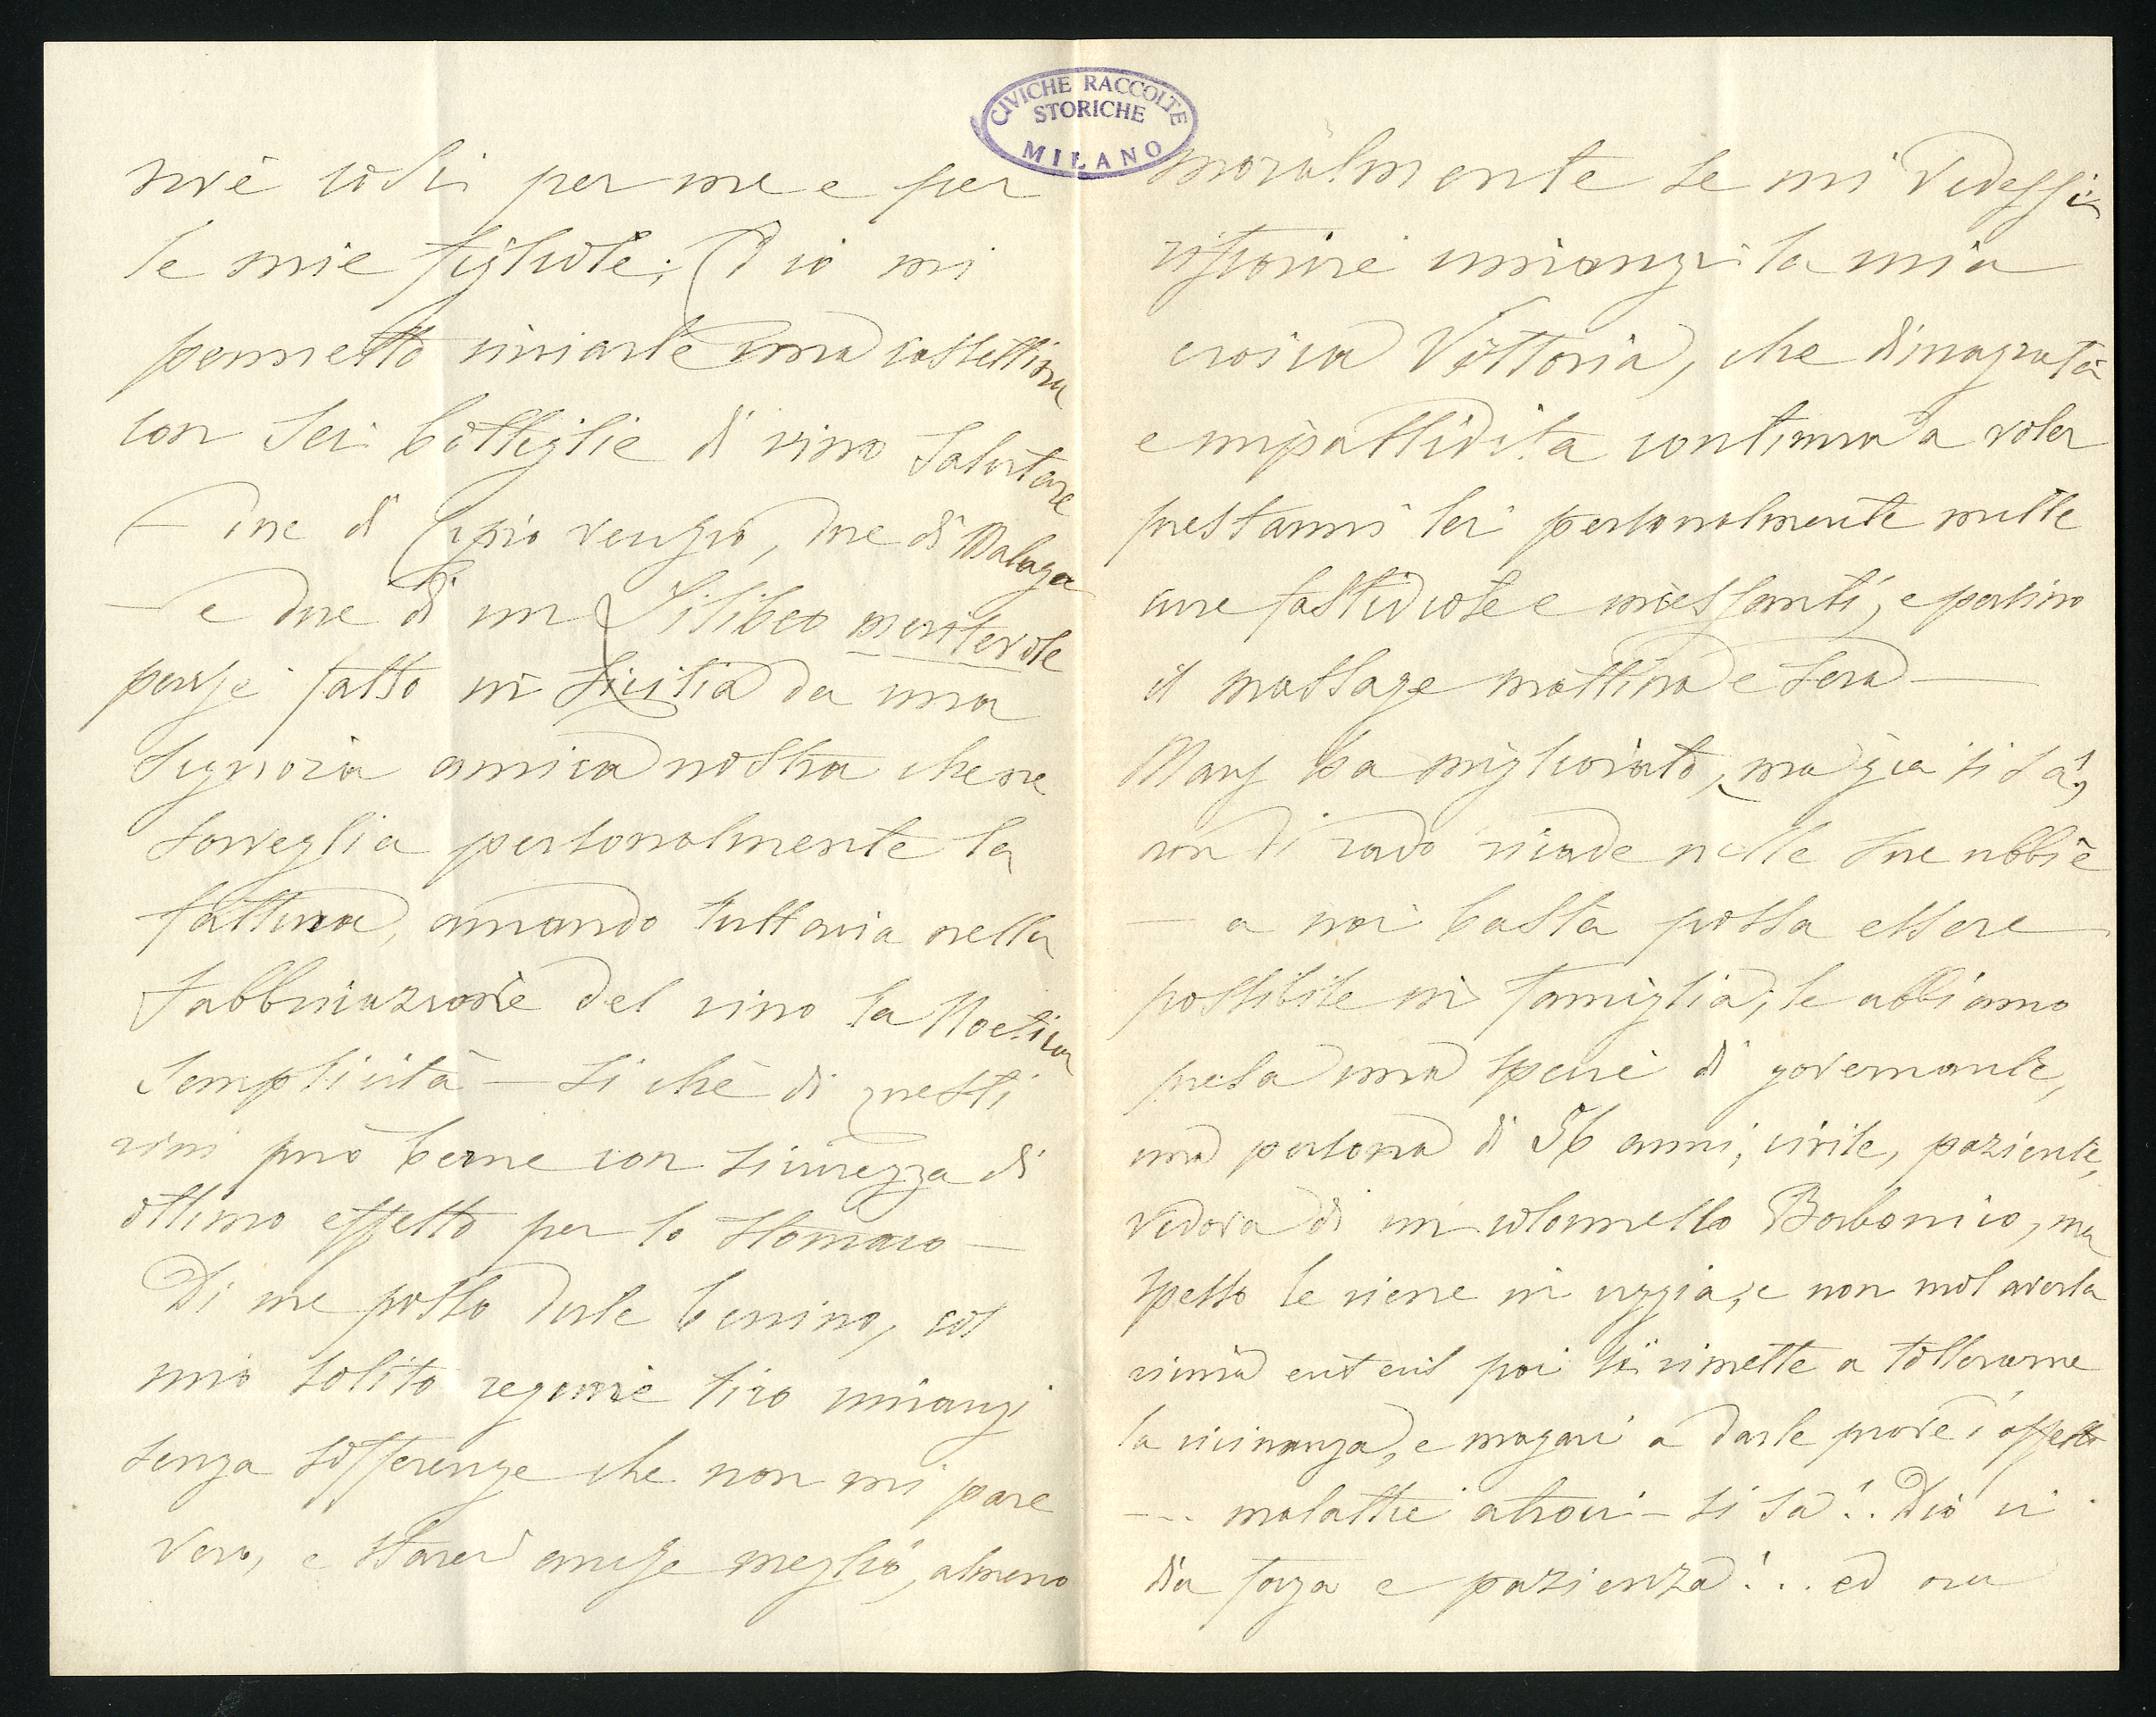 CIVICHE RACCOLTE
STORICHE
MILANO
per me e per
le mie figliole; ed io mi
permetto inviarle una cassettina
con sei bottiglie di vino salutare
— due di Cipro vecchio, due di Malaga
— e due di un Lilibeo meritevole
perché fatto in Sicilia da una
Signora amica nostra che ne
sorveglia personalmente la
fattura, amando tuttavia nella
fabbricazione del vino la Noetica
semplicità — sicché di questi
vini può berne con sicurezza di
ottimo effetto per lo stomaco —
Di me posso dirle benino, col
mio solito regime tiro innanzi
senza sofferenze che non mi pare
vero, e starei anche meglio, almeno
moralmente se mi vedessi
rifiorire innanzi la mia
eroica Vittoria, che dimagrata
e impallidita continua a voler
prestarmi lei personalmente mille
cure fastidiose e incessanti, e persino
il massage mattina e sera —
Mary ha migliorato, ma già si sa,
non di rado ricade nelle sue ubbie
— a noi basta possa essere
possibile in famiglia; le abbiamo
presa una specie di governante,
una persona di 56 anni, civile, paziente,
vedova di un colonnello Borbonico, ma
spesso le viene in uggia, e non vuol averla
vicina poi si rimette a tollerarne
la vicinanza, e magari a darle prove d'affetto
--- malattie atroci — si sa!.. Dio ci
dia forza e pazienza!... ed ora